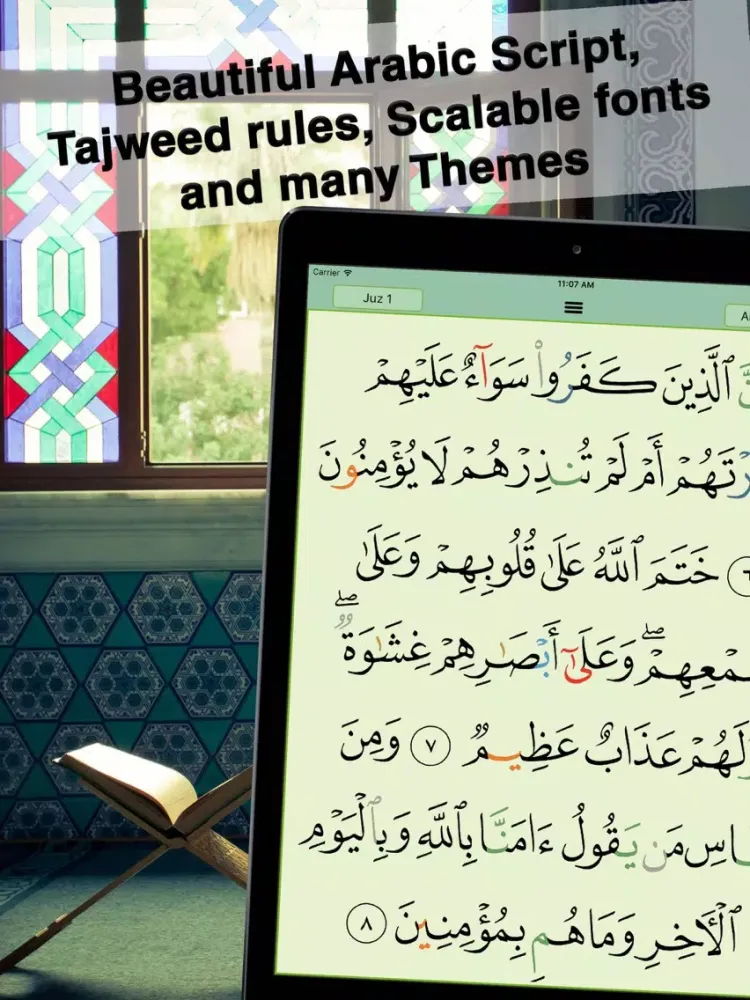 Beautiful Arabic Script,
Tajweed rules, Scalable fonts
and many Themes
Carrier 11:07 AM
Juz 1
ٱلَّذِينَ كَفَرُوا۟ سَوَآءٌ عَلَيْهِمْ
رْتَهُمْ أَمْ لَمْ تُنذِرْهُمْ لَا يُؤْمِنُونَ
٦ خَتَمَ ٱللَّهُ عَلَىٰ قُلُوبِهِمْ وَعَلَىٰ
مْعِهِمْ ۖ وَعَلَىٰٓ أَبْصَـٰرِهِمْ غِشَـٰوَةٌ ۖ
لَهُمْ عَذَابٌ عَظِيمٌ ٧ وَمِنَ
اسِ مَن يَقُولُ ءَامَنَّا بِٱللَّهِ وَبِٱلْيَوْمِ
ٱلْـَٔاخِرِ وَمَا هُم بِمُؤْمِنِينَ ٨